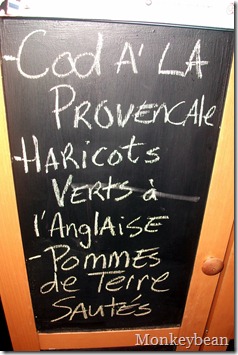 -Cod A' LA
PROVENCALE
-HARICOTS
VERTS à
l'ANGLAISE
-POMMES
de Terre
SAUTÉS
Monkeybean